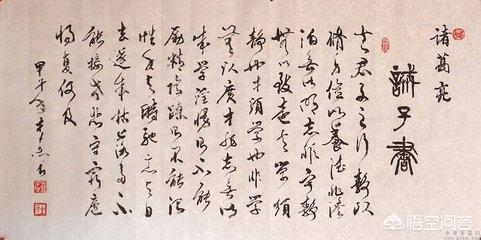 诸葛亮
誡子書
夫君子之行静以
修身俭以养德非澹
泊无以明志非宁静
无以致远夫学须
静也才须学也非学
无以广才非志无以
成学淫慢则不能
励精险躁则不能治
性年与时驰意与日
去遂成枯落多不
能接世悲守穷庐
将复何及
甲午年
悟空问答